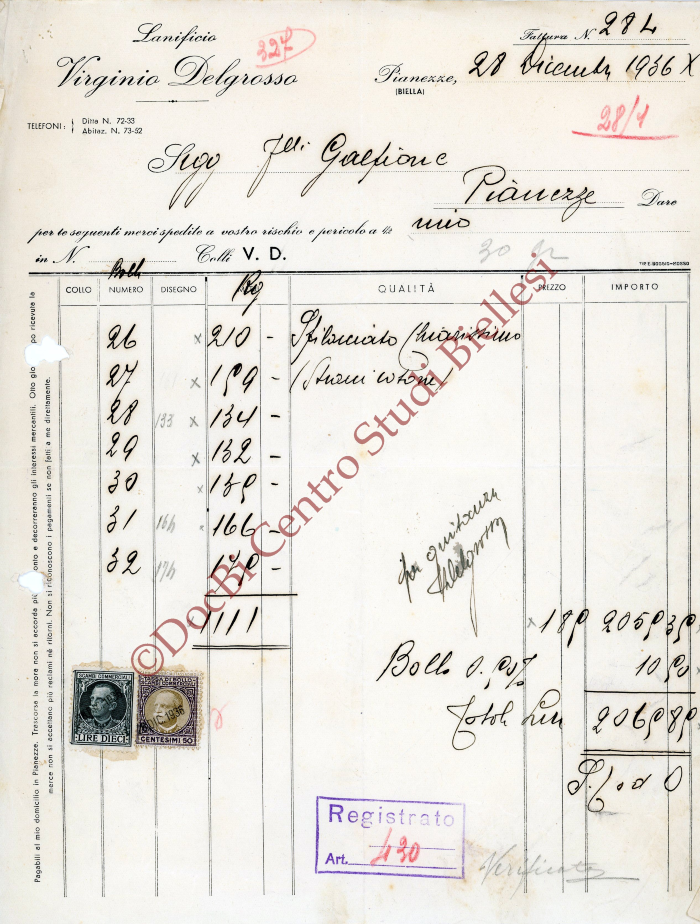 Lanificio
Virginio Delgrosso
327
Fattura N. 284
Pianezze, 28 Dicembre 1936 X
(BIELLA)
28/1
TELEFONI: Ditta N. 72-33
Abitaz. N. 73-52
Sigg Flli Galfione
Pianezze Dare
per le seguenti merci spedite a vostro rischio e pericolo a ½ mio
in N. Colli V. D.
30
COLLO NUMERO DISEGNO Kg QUALITÀ PREZZO IMPORTO
26 x 210 - Sfilacciato Chiarissimo
27 x 159 - (Strami cotone)
28 133 x 134 -
29 x 132 -
30 x 139 -
31 166 166 -
32 170 -
1111 x 185 205535
Bollo 0.50% 1050
Totale Lire 206585
per quitanza
Delgrosso
S. E. od O
LIRE DIECI
CENTESIMI 50
Registrato
Art. 430
Verificato
Pagabili al mio domicilio in Pianezze. Trascorsa la mora non si accorda più
onto e decorreranno gli interessi mercantili. Otto gio
po ricevuta la
merce non si accettano più reclami nè ritorni. Non si riconoscono i pagamenti se non fatti a me direttamente.
©DocBi Centro Studi Biellesi